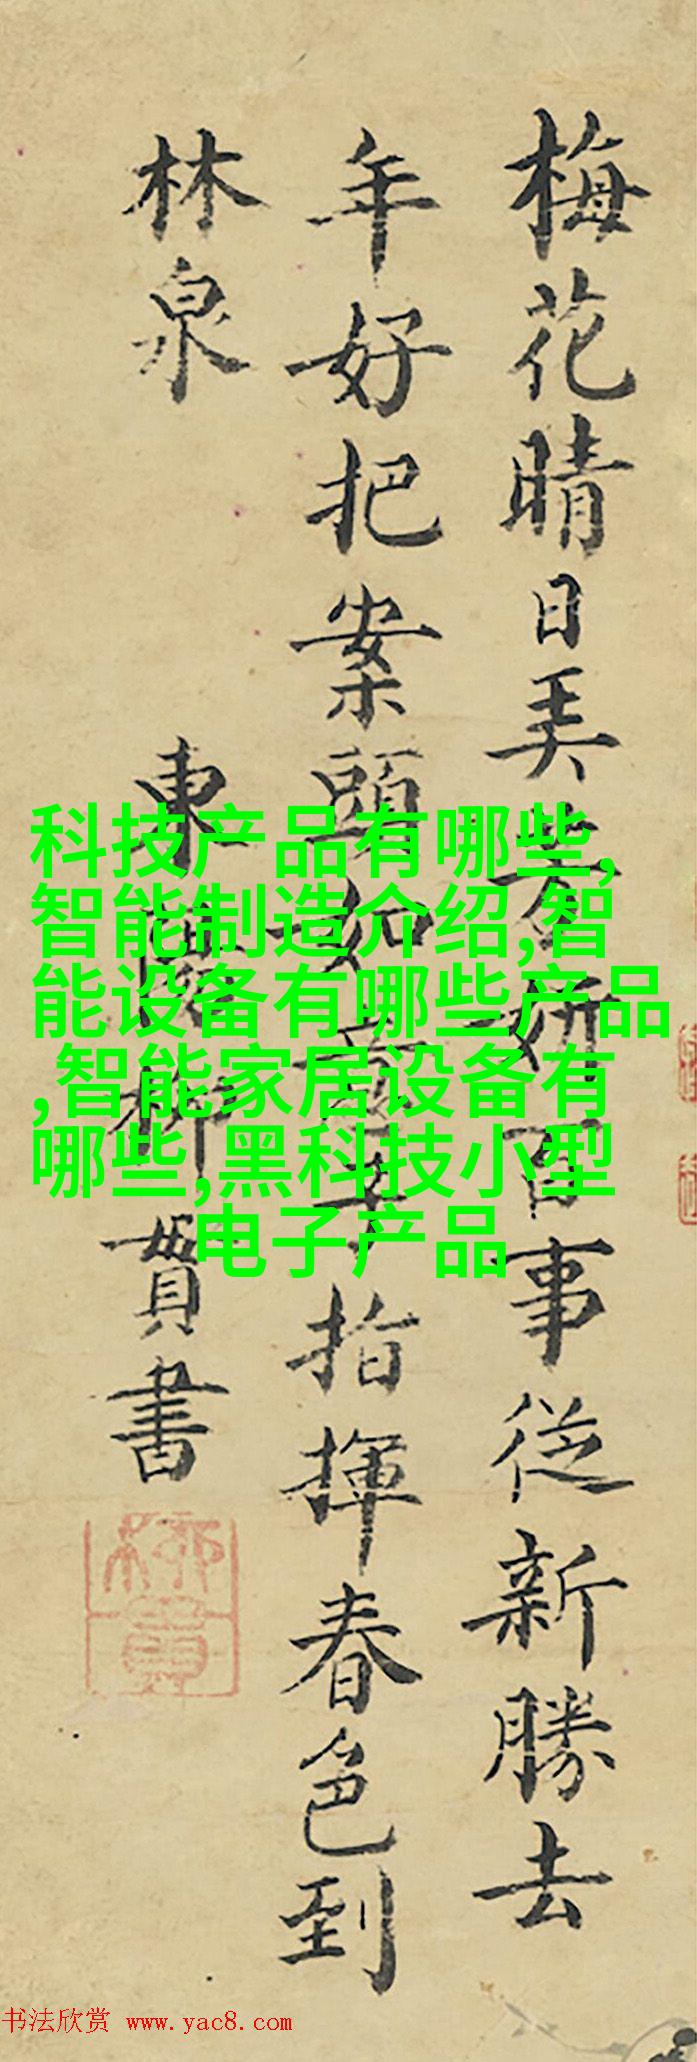 梅花晴日美芳妍百事從新勝去
年好把案頭如意子指揮春色到
林泉
東陽柳貫書
柳貫
科技产品有哪些,
智能制造介绍,智
能设备有哪些产品
,智能家居设备有
哪些,黑科技小型
电子产品
书法欣赏 www.yac8.com